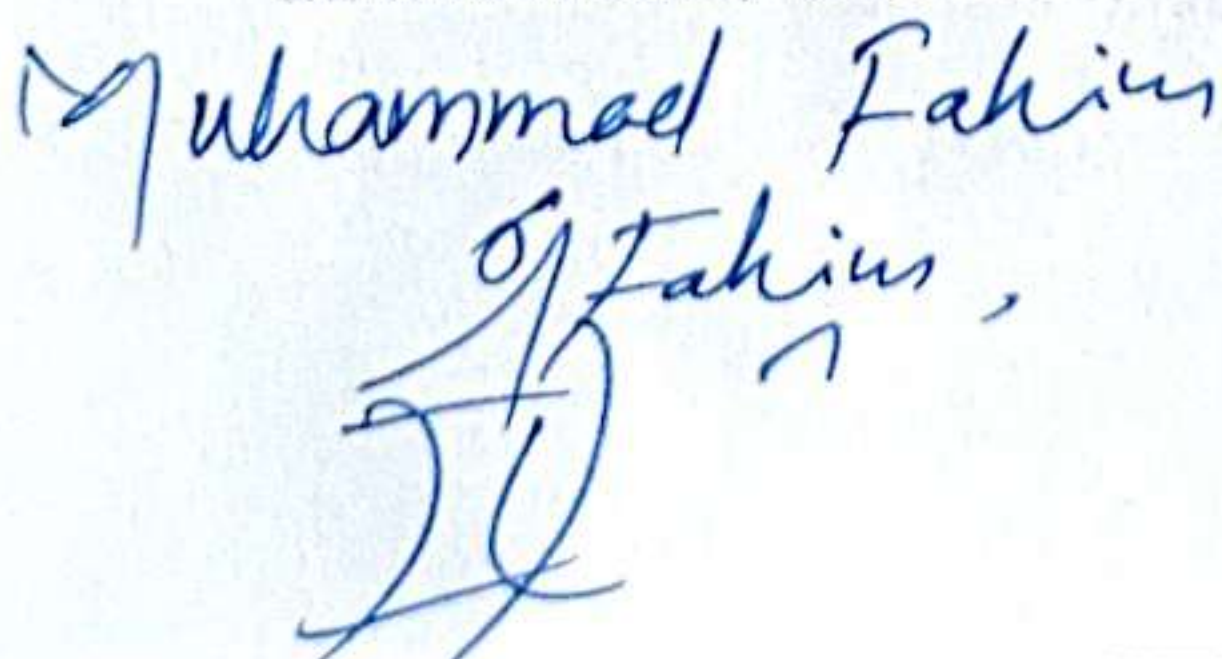 Muhammad Fahim
Fahim,